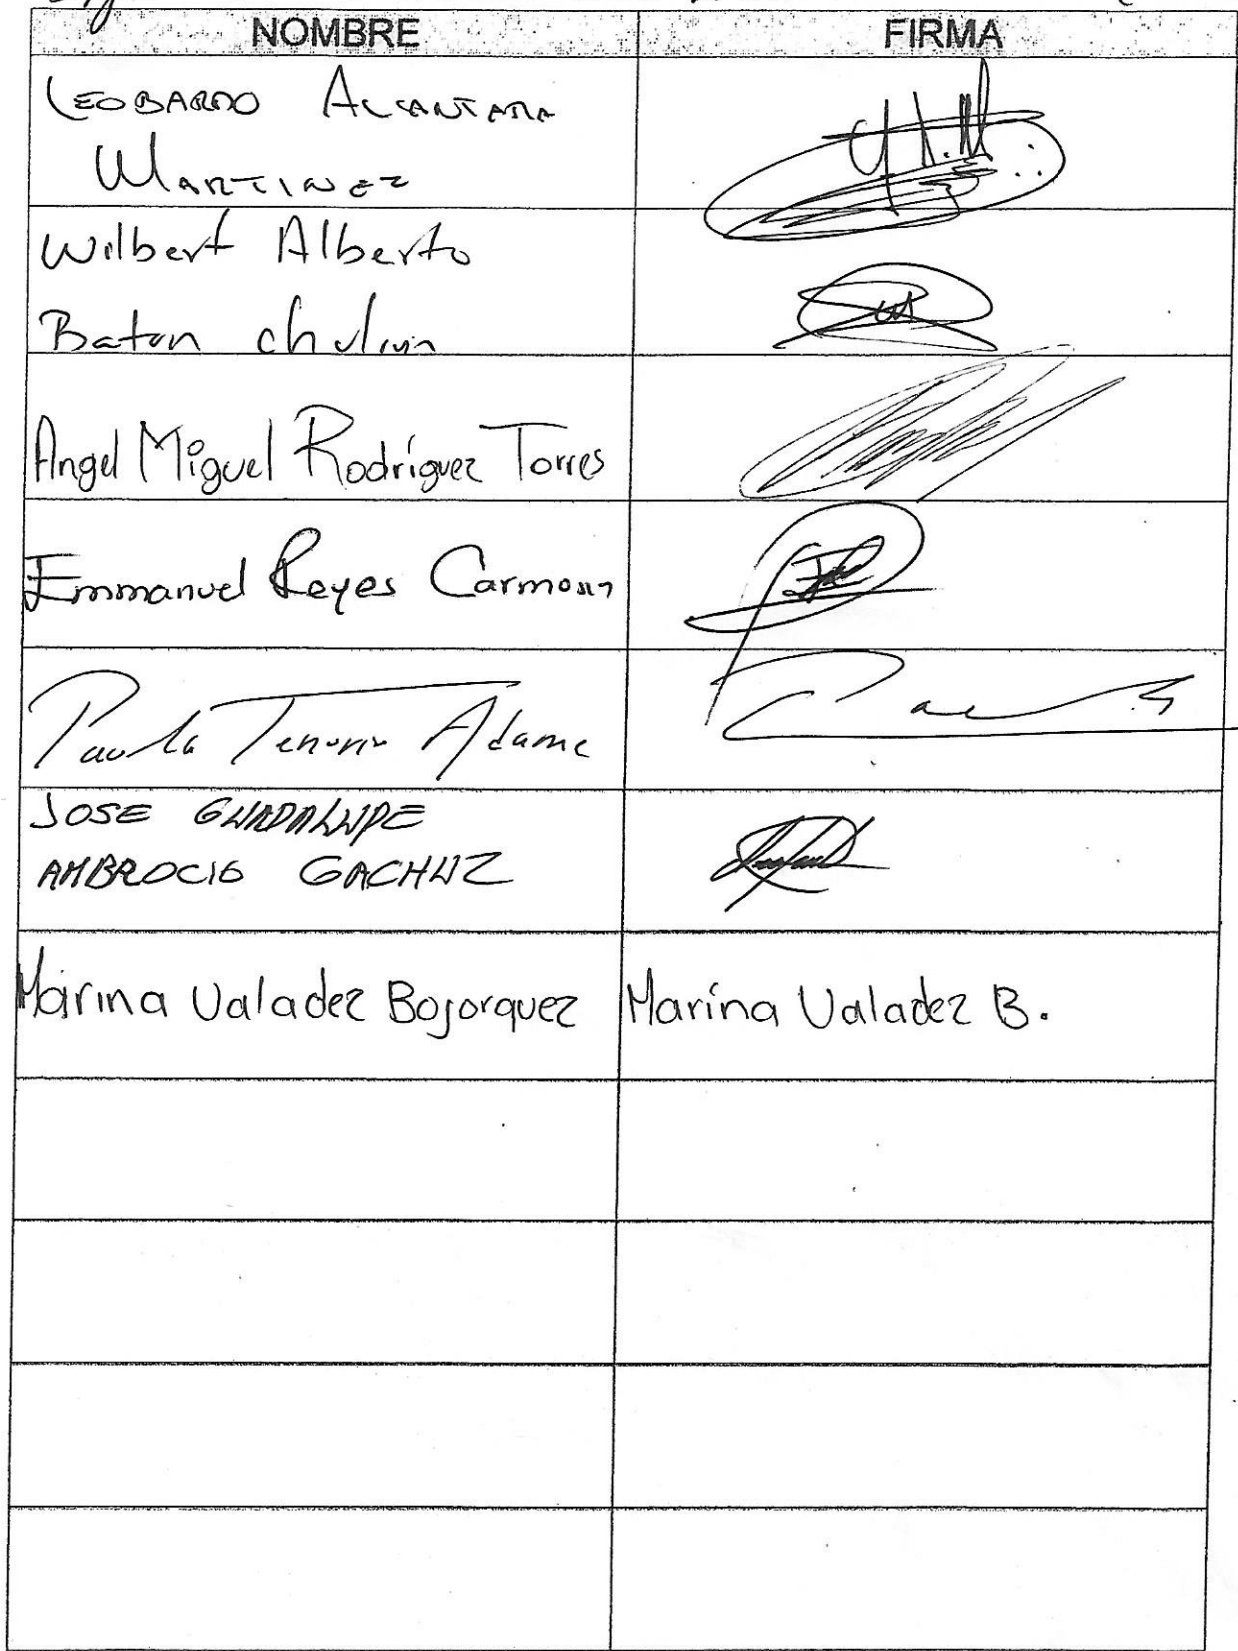 NOMBRE FIRMA
LEOBARDO ALCANTARA
MARTINEZ
Wilbert Alberto
Baton chulim
Angel Miguel Rodríguez Torres
Emmanuel Reyes Carmona
Paola Tenorio Adame
JOSE GUADALUPE
AMBROCIO GACHUZ
Marina Valadez Bojorquez Marina Valadez B.